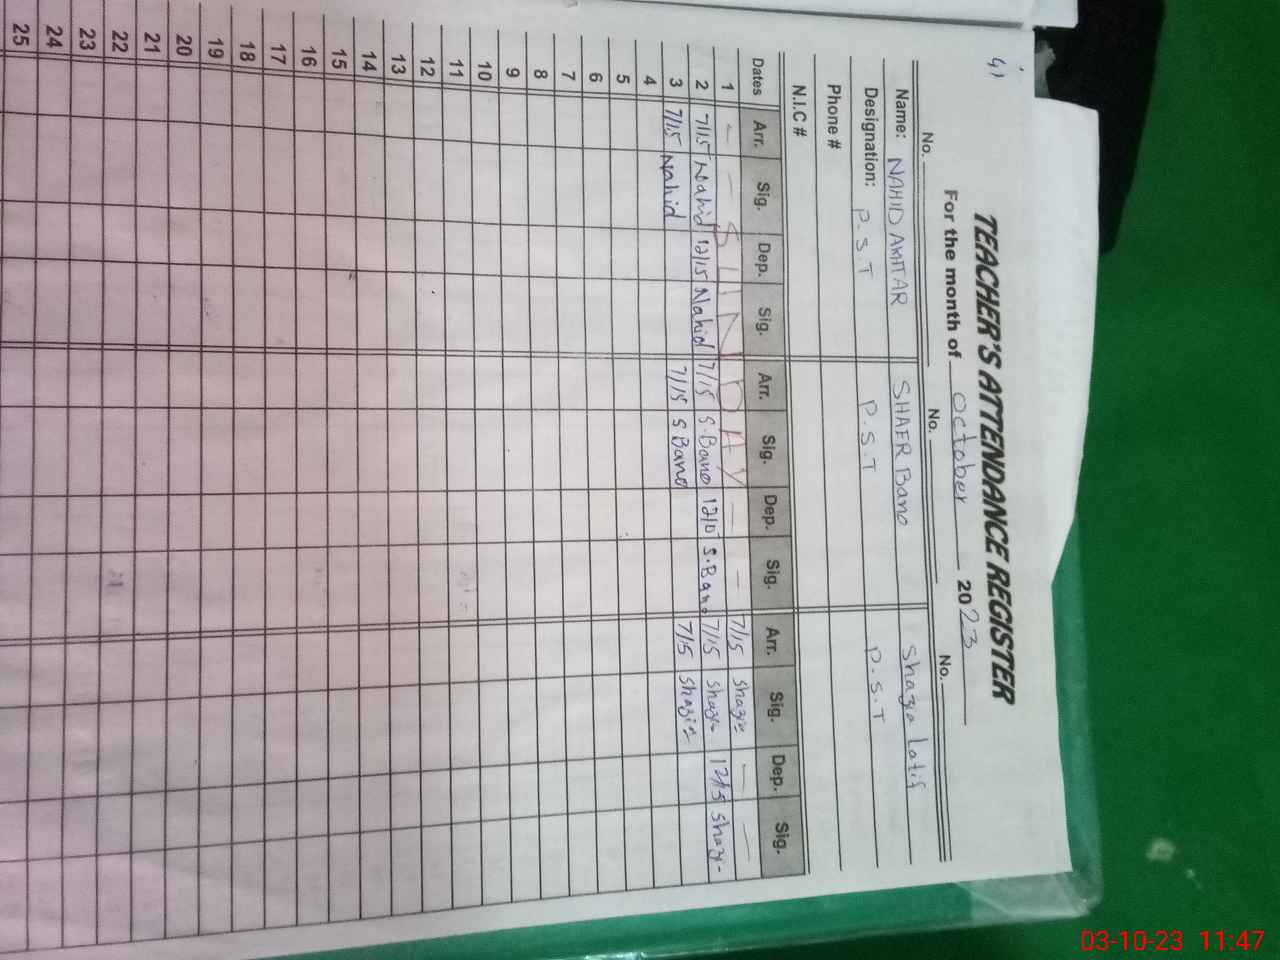 TEACHER'S ATTENDANCE REGISTER
For the month of October 2023
No. No. No.
Name: NAHID AKHTAR SHAER Bano Shazia Latif
Designation: P.S.T P.S.T P.S.T
Phone #
N.I.C #
Dates Arr. Sig. Dep. Sig. Arr. Sig. Dep. Sig. Arr. Sig. Dep. Sig.
1 — — SUNDAY — — 7/15 Shazia — —
2 7/15 Nahid 12/15 Nahid 7/15 S.Bano S.Bano 7/15 Shazia 12/15
3 7/15 Nahid 7/15 S Bano 7/15 Shazia
4
5
6
7
8
9
10
11
12
13
14
15
16
17
18
19
20
21
22
23
24
25
03-10-23 11:47